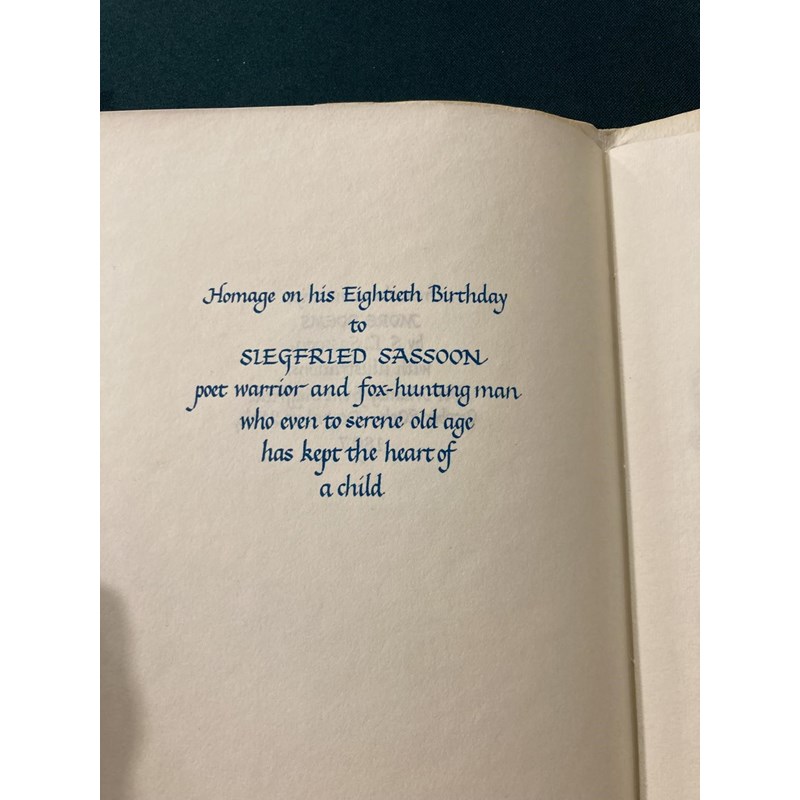 Homage on his Eightieth Birthday
to
SIEGFRIED SASSOON
poet warrior and fox-hunting man
who even to serene old age
has kept the heart of
a child